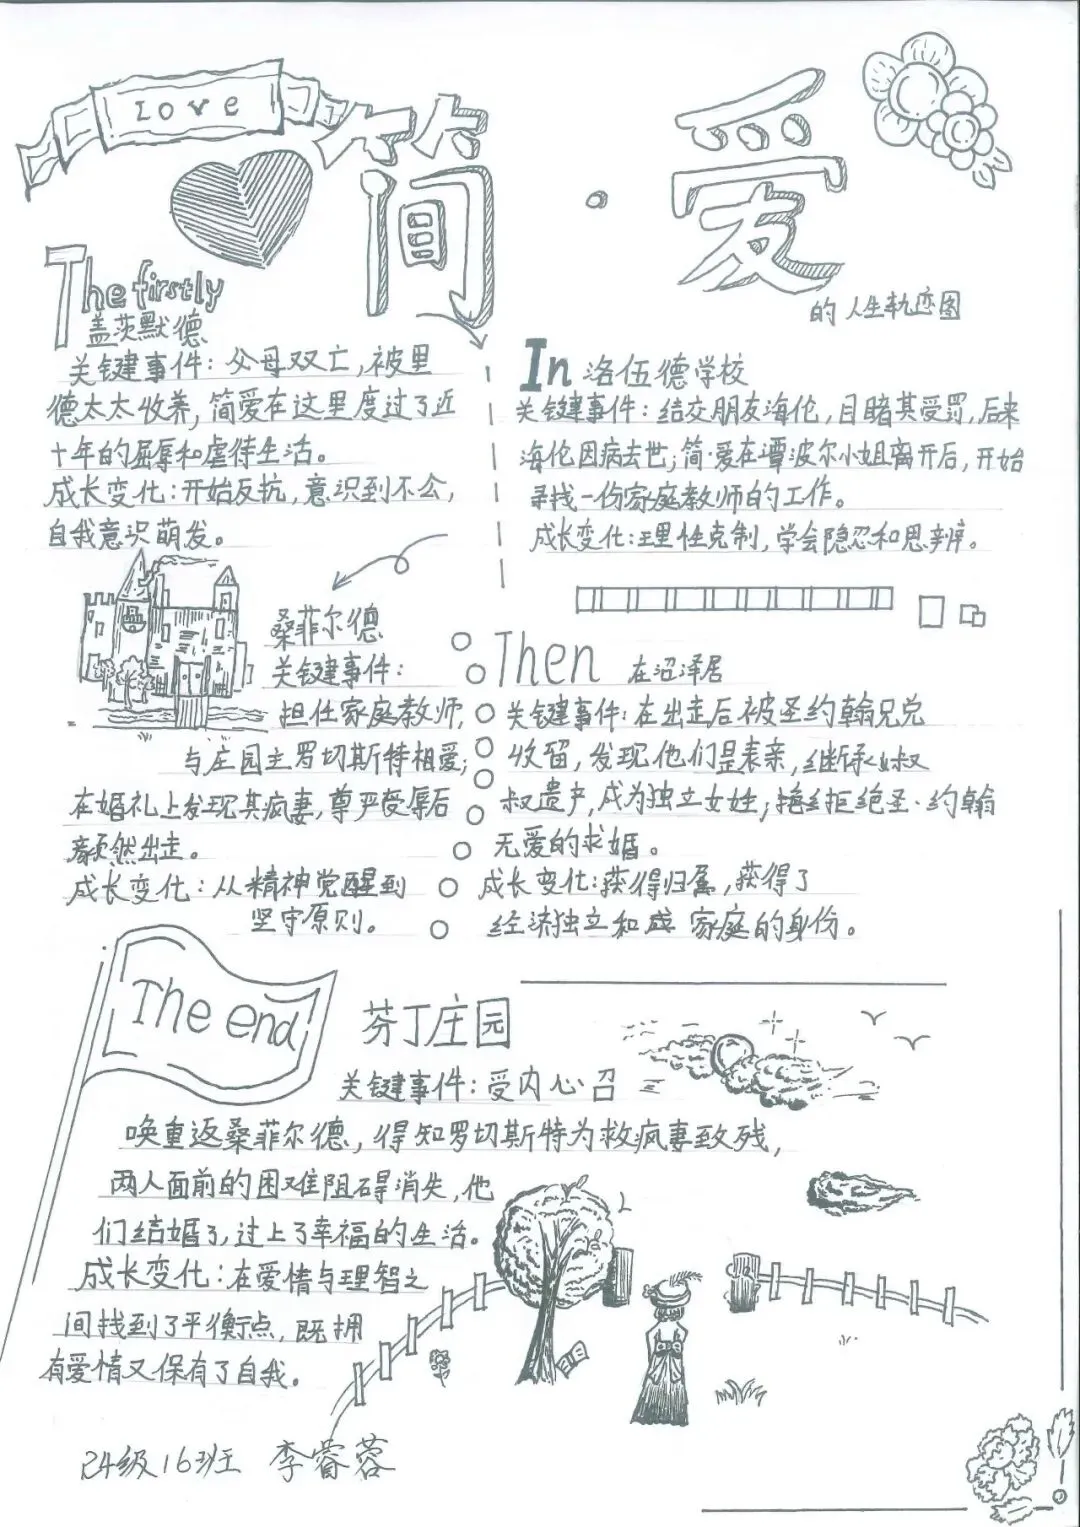 Love
简·爱
的人生轨迹图
The firstly
盖茨默德
关键事件：父母双亡，被里
德太太收养，简爱在这里度过了近
十年的屈辱和虐待生活。
成长变化：开始反抗，意识到不公，
自我意识萌发。
In 洛伍德学校
关键事件：结交朋友海伦，目睹其受罚，后来
海伦因病去世；简·爱在谭波尔小姐离开后，开始
寻找一份家庭教师的工作。
成长变化：理性克制，学会隐忍和思辨。
桑菲尔德
关键事件：
担任家庭教师，
与庄园主罗切斯特相爱；
在婚礼上发现其疯妻，尊严受辱后
毅然出走。
成长变化：从精神觉醒到
坚守原则。
Then 在沼泽居
关键事件：在出走后被圣约翰兄
收留，发现他们是表亲，继承叔
叔遗产，成为独立女姓；拒绝圣·约翰
无爱的求婚。
成长变化：获得归属，获得了
经济独立和成 家庭的身份。
The end
芬丁庄园
关键事件：受内心召
唤重返桑菲尔德，得知罗切斯特为救疯妻致残，
两人面前的困难阻碍消失，他
们结婚了，过上了幸福的生活。
成长变化：在爱情与理智之
间找到了平衡点，既拥
有爱情又保有了自我。
24级16班 李睿蓉